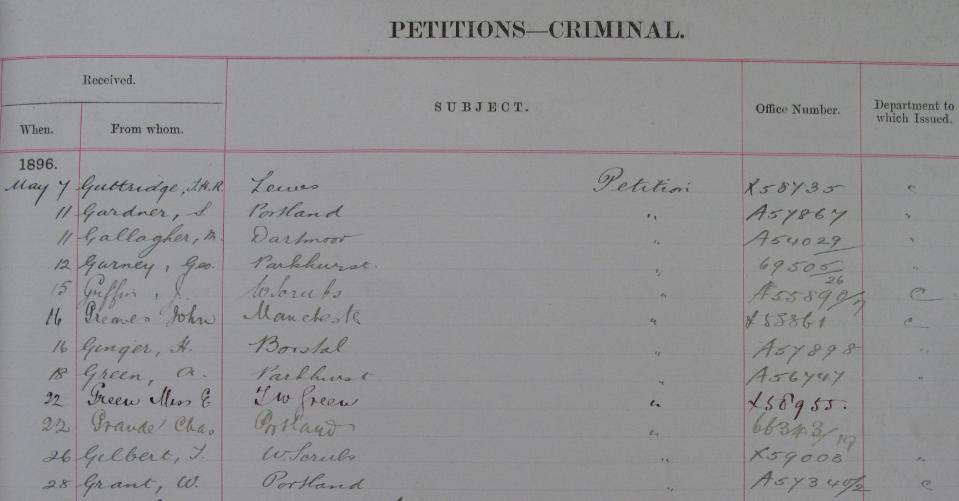 PETITIONS—CRIMINAL.
Received. SUBJECT. Office Number. Department to which Issued.
When. From whom.
1896.
May 7 Guttridge, Lewes Petition X58735 c
11 Gardner, S. Portland " A57867 "
11 Gallagher, M. Dartmoor " A54029 "
12 Gurney, Geo. Parkhurst. " 69505/26 "
15 Griffin, J. W. Scrubs " A55890/7 C
16 Greaves John Manchester " X58861 c
16 Ginger, H. Borstal " A57898 "
18 Green, A. Parkhurst " A56747 "
22 Green Miss E T W Green " X58955.
22 Grande Chas Portland " 66343/19
26 Gilbert, T. W. Scrubs " X59003 "
28 Grant, W. Portland " A57340/2 c